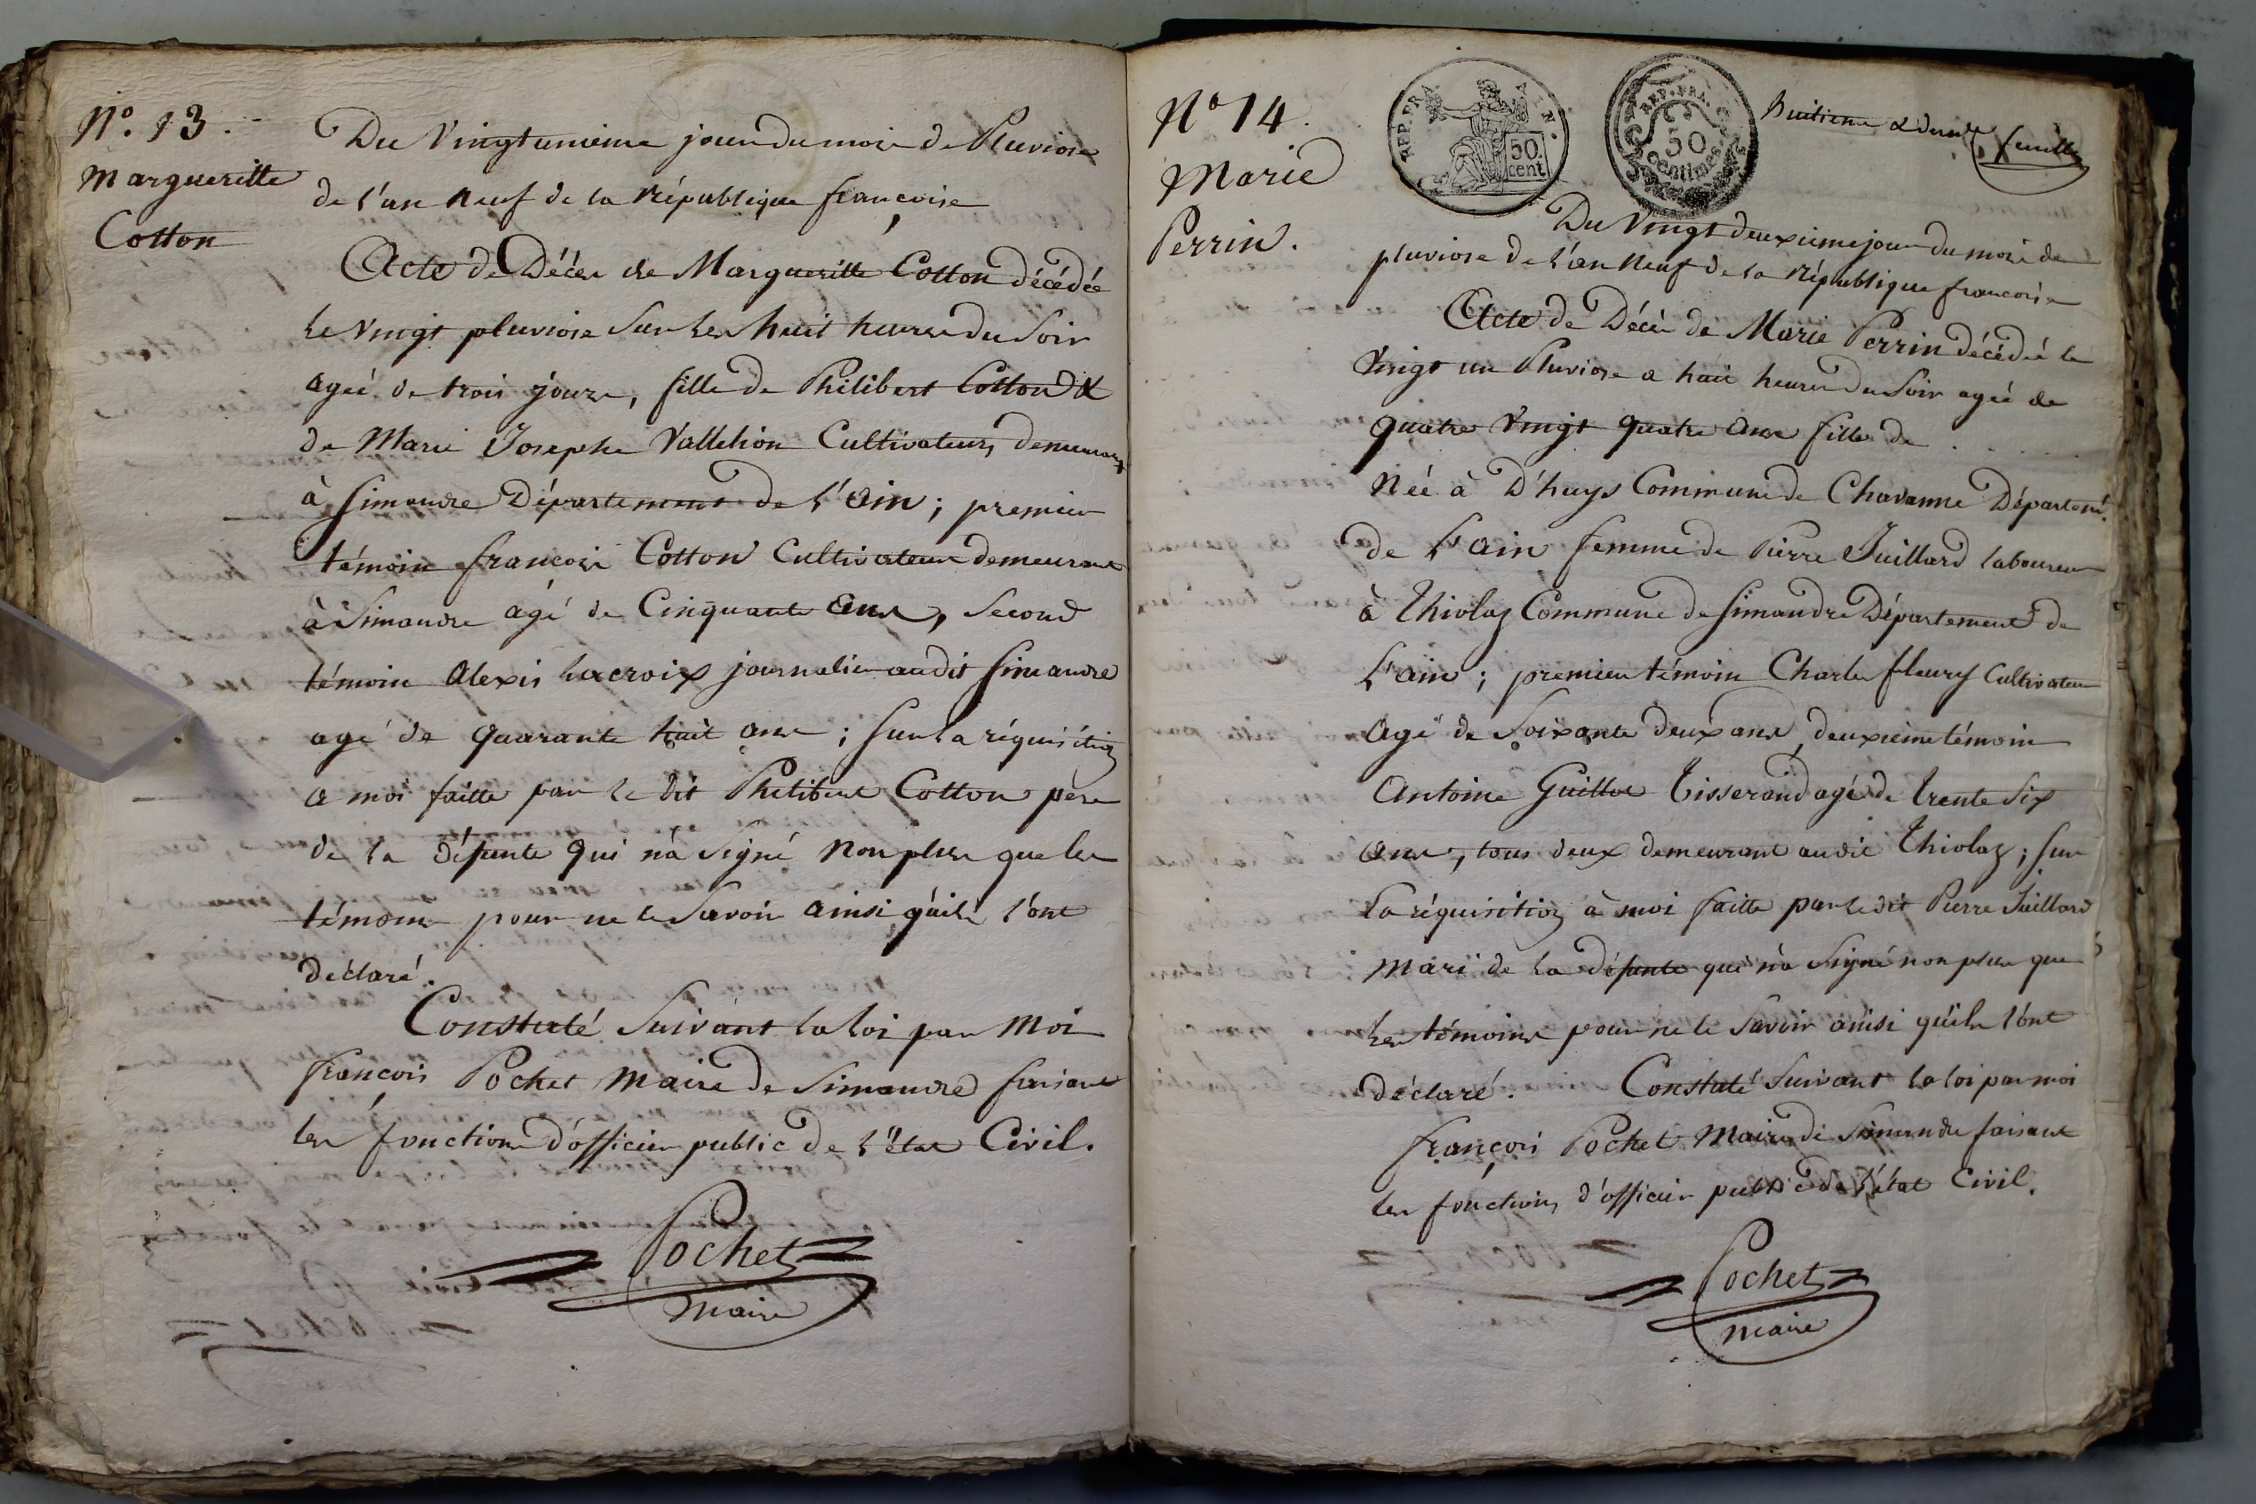 N.º 13.
Margueritte
Cotton
Du Vingtunieme jour du mois de Pluviose
de l'an neuf de la République françoise
Acte de Décès de Margueritte Cotton décédée
le vingt pluviose sur les huit heures du Soir
agée de trois jours, fille de Philibert Cotton &
de Marie Josephe Vallelion Cultivateurs demeurant
à Simandre Département de l'Ain ; premier
témoin françois Cotton Cultivateur demeurant
à Simandre agé de Cinquante ans, Second
témoin Alexis Lacroix journalier audit Simandre
agé de quarante huit ans ; sur la réquisition
a moi faitte par le dit Philibert Cotton père
de la défunte qui n'a signé non plus que les
témoins pour ne le Savoir ainsi qu'ils l'ont
déclaré.
Constaté Suivant la loi par Moi
françois Pochet Maire de Simandre faisant
les fonctions d'officier public de l'état Civil.
Pochet
Maire
Nº 14.
Marie
Perrin.
REP. FRA.
50
cent
REP. FRA.
50
centimes
huitieme & dernier feuillet
Du Vingt deuxieme jour du mois de
pluviose de l'an Neuf de la République françoise
Acte de Décès de Marie Perrin décédée le
Vingt un Pluviose a huit heures du Soir agée de
quatre Vingt quatre ans fille de . . . . .
Née à D'huys Commune de Chavanne Départemt.
de l'ain femme de Pierre Juillard laboureur
à Thiolaz Commune de Simandre Département de
l'ain ; premier témoin Charles fleury Cultivateur
agé de Soixante deux ans, deuxieme témoin
Antoine Guillot Tisserand agé de trente Six
ans, tous deux demeurant audit Thiolaz ; sur
la réquisition à moi faitte par le dit Pierre Juillard
mari de la défunte qui n'a Signé non plus que
les témoins pour ne le Savoir ainsi qu'ils l'ont
déclaré. Constaté Suivant la loi par moi
françois Pochet Maire de Simandre faisant
les fonctions d'officier public de l'état Civil.
Pochet
maire